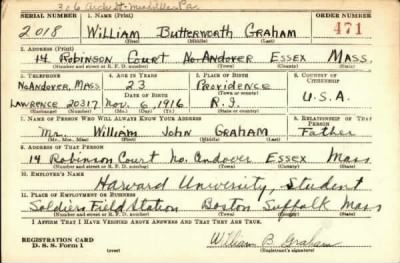 306 Arch St. Meadville Pa.
SERIAL NUMBER 1. NAME (Print) ORDER NUMBER
2018 William Butterworth Graham 471
(First) (Middle) (Last)
2. ADDRESS (Print)
14 Robinson Court No. Andover Essex Mass.
(Number and street or R. F. D. number) (Town) (County) (State)
3. TELEPHONE 4. AGE IN YEARS 5. PLACE OF BIRTH 6. COUNTRY OF CITIZENSHIP
No Andover, Mass. 23 Providence
DATE OF BIRTH (Town or county)
Lawrence 20317 Nov. 6, 1916 R.I. U.S.A.
(Exchange) (Number) (Mo.) (Day) (Yr.) (State or country)
7. NAME OF PERSON WHO WILL ALWAYS KNOW YOUR ADDRESS 8. RELATIONSHIP OF THAT PERSON
Mr. William John Graham Father
(Mr., Mrs., Miss) (First) (Middle) (Last)
9. ADDRESS OF THAT PERSON
14 Robinson Court No. Andover Essex Mass
(Number and street or R. F. D. number) (Town) (County) (State)
10. EMPLOYER'S NAME
Harvard University, Student
11. PLACE OF EMPLOYMENT OR BUSINESS
Soldiers Field Station Boston Suffolk Mass
(Number and street or R. F. D. number) (Town) (County) (State)
I AFFIRM THAT I HAVE VERIFIED ABOVE ANSWERS AND THAT THEY ARE TRUE.
REGISTRATION CARD
D. S. S. Form 1 (over) William B. Graham
(Registrant's signature)